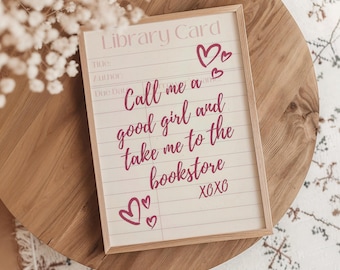 Library Card
Title
Author
Due Date
Call me a
good girl and
take me to the
bookstore
XOXO